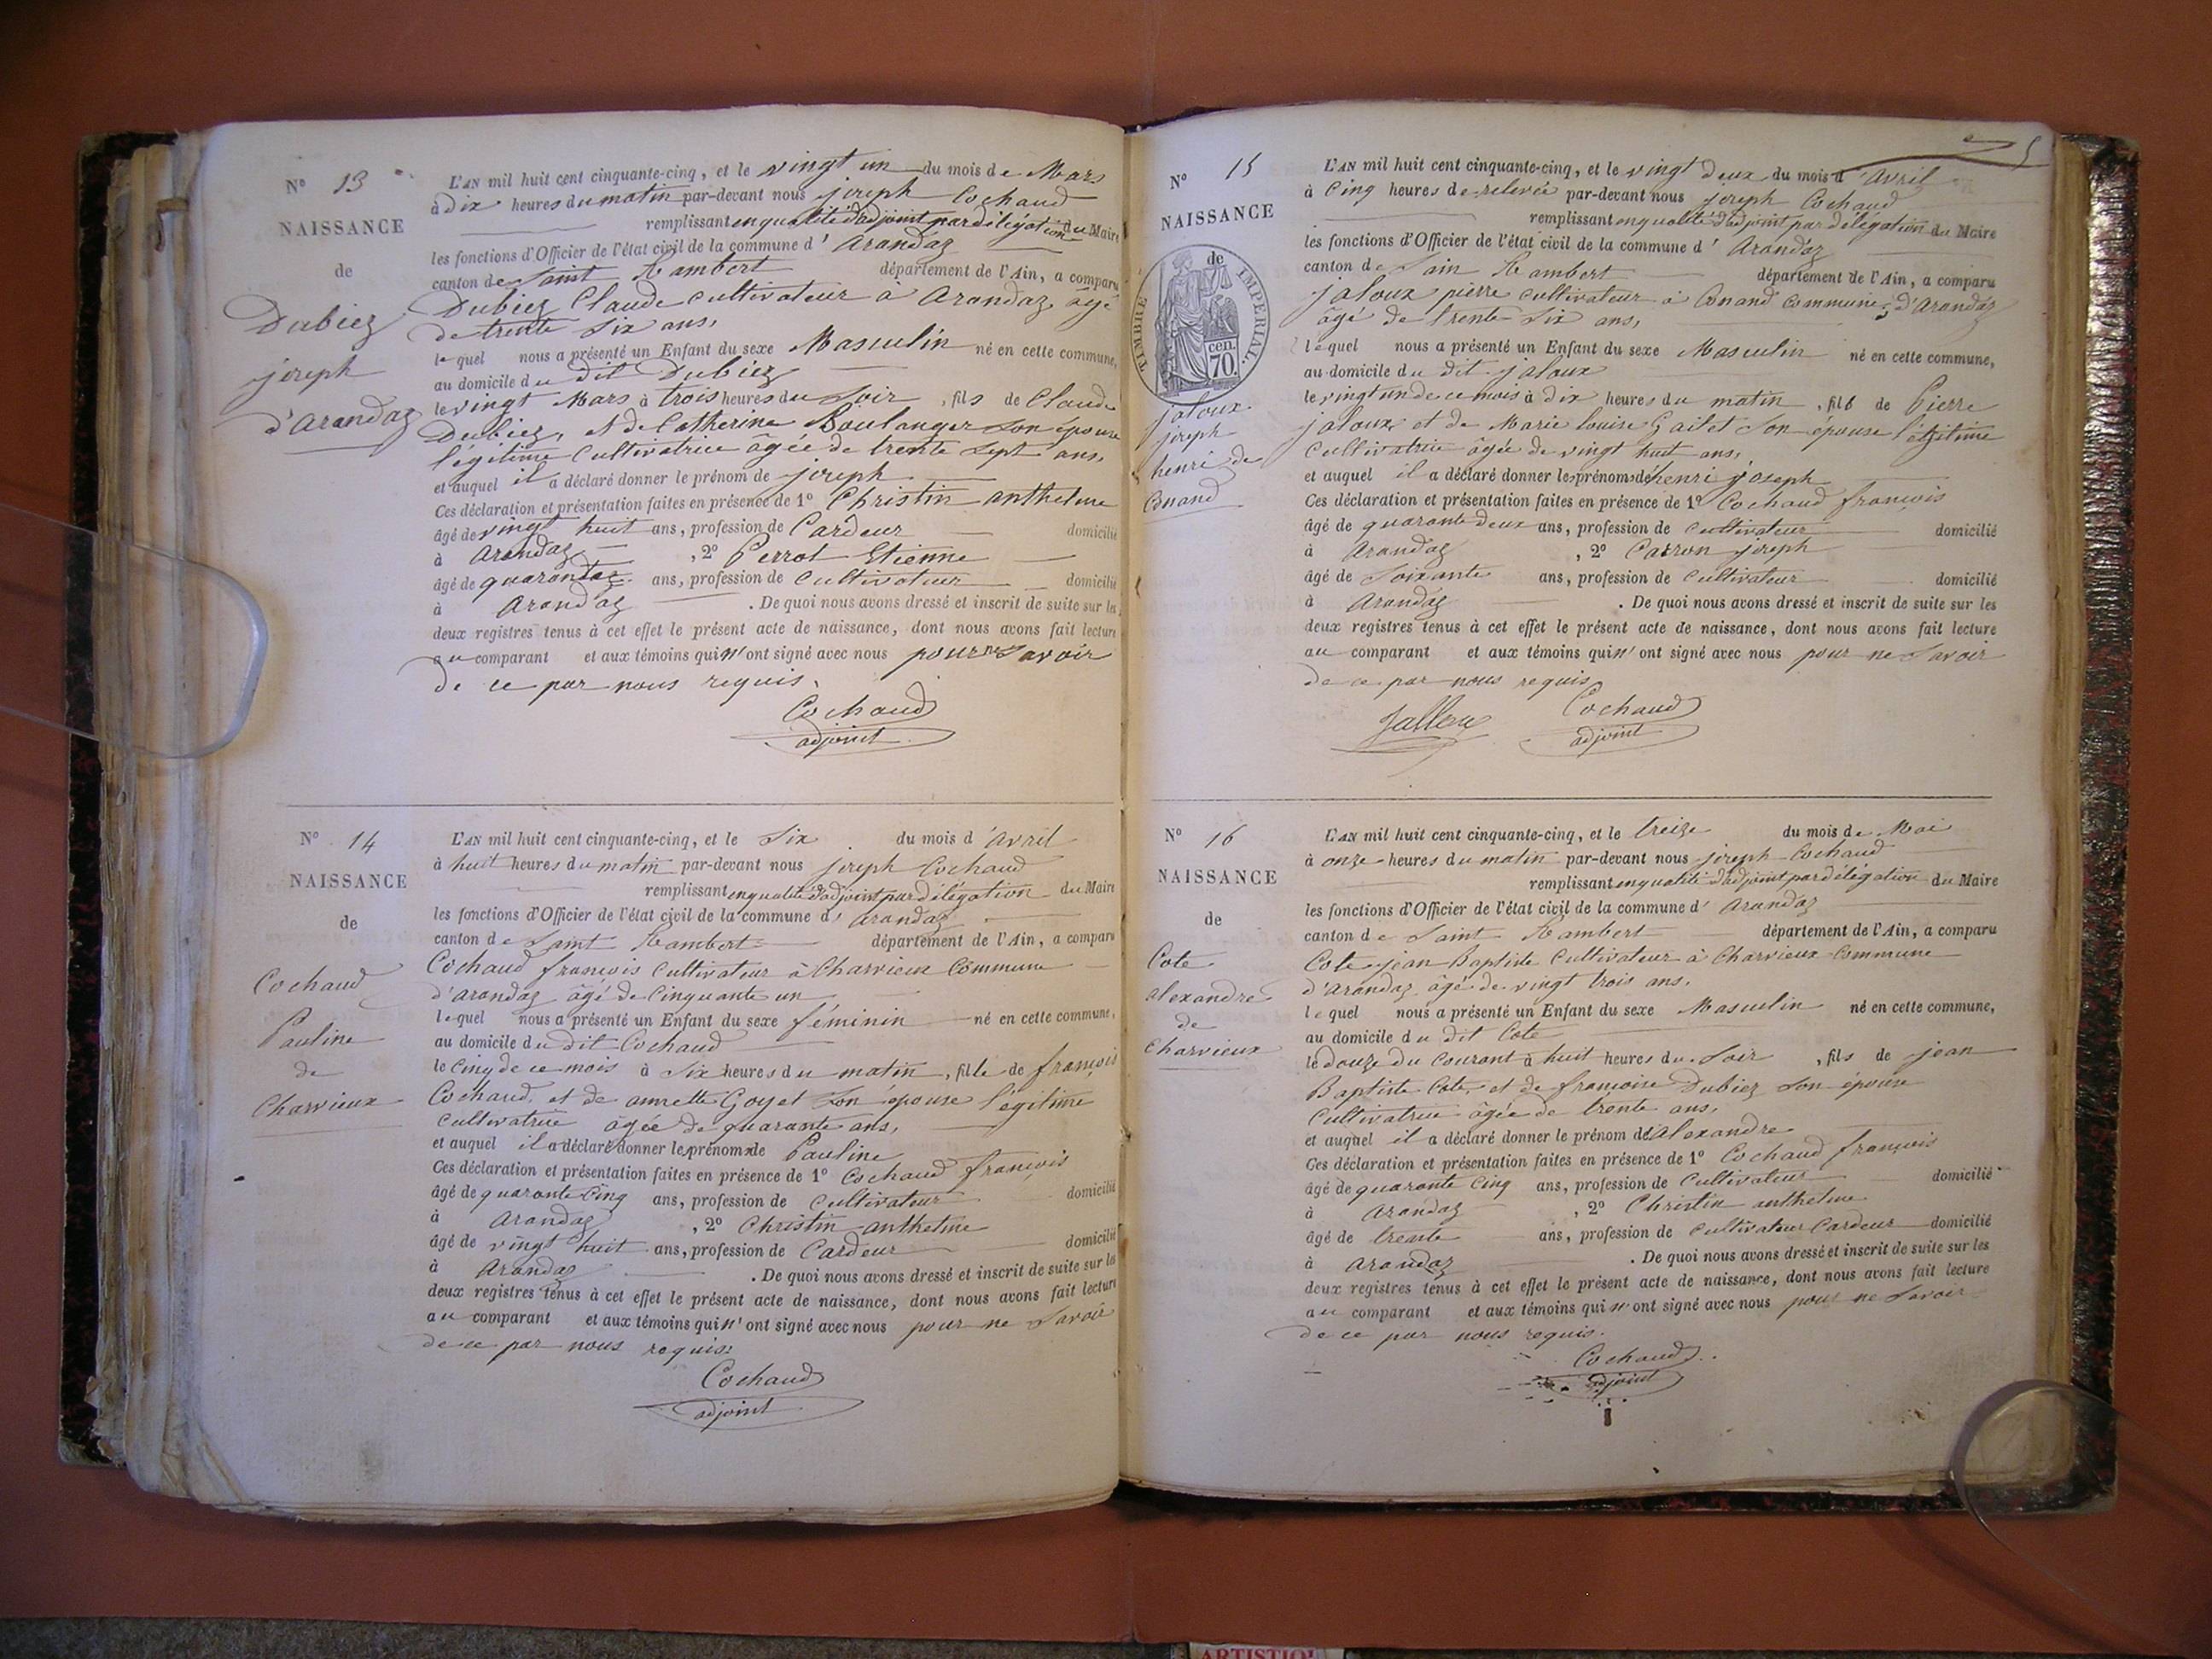 N° 13
NAISSANCE
de
Dubiez
joseph
d'Arandaz
L'AN mil huit cent cinquante-cinq, et le vingt un du mois de Mars
à dix heures du matin par-devant nous joseph Cochaud
remplissant en qualité d'adjoint par délégation du Maire
les fonctions d'Officier de l'état civil de la commune d' Arandaz
canton de Saint Rambert département de l'Ain, a comparu
Dubiez Claude cultivateur à Arandaz âgé
de trente Six ans,
lequel nous a présenté un Enfant du sexe Masculin né en cette commune,
au domicile du dit Dubiez
le vingt Mars à trois heures du Soir, fils de Claude
Dubiez, et de Catherine Boulanger Son épouse
légitime Cultivatrice âgée de trente Sept ans,
et auquel il a déclaré donner le prénom de joseph
Ces déclaration et présentation faites en présence de 1° Christin anthelme
âgé de vingt huit ans, profession de Cardeur domicilié
à Arandaz, 2° Perrot Etienne
âgé de quarante ans, profession de Cultivateur domicilié
à Arandaz. De quoi nous avons dressé et inscrit de suite sur les
deux registres tenus à cet effet le présent acte de naissance, dont nous avons fait lecture
au comparant et aux témoins qui n'ont signé avec nous pour ne Savoir
de ce par nous requis.
Cochaud
adjoint
N° 14
NAISSANCE
de
Cochaud
Pauline
de
Charvieux
L'AN mil huit cent cinquante-cinq, et le Six du mois d'avril
à huit heures du matin par-devant nous joseph Cochaud
remplissant en qualité d'adjoint par délégation du Maire
les fonctions d'Officier de l'état civil de la commune d' arandaz
canton de Saint Rambert département de l'Ain, a comparu
Cochaud françois Cultivateur à Charvieux Commune
d'arandaz âgé de Cinquante un
lequel nous a présenté un Enfant du sexe féminin né en cette commune,
au domicile du dit Cochaud
le Cinq de ce mois à Six heures du matin, fille de françois
Cochaud, et de annette Goyet Son épouse légitime
Cultivatrice âgée de quarante ans,
et auquel il a déclaré donner les prénoms de Pauline
Ces déclaration et présentation faites en présence de 1° Cochaud françois
âgé de quarante Cinq ans, profession de Cultivateur domicilié
à Arandaz, 2° Christin anthelme
âgé de vingt huit ans, profession de Cardeur domicilié
à Arandaz. De quoi nous avons dressé et inscrit de suite sur les
deux registres tenus à cet effet le présent acte de naissance, dont nous avons fait lecture
au comparant et aux témoins qui n'ont signé avec nous pour ne Savoir
de ce par nous requis
Cochaud
adjoint
5
N° 15
NAISSANCE
de
TIMBRE IMPERIAL.
cen.
70.
jaloux
joseph
henri de
Conand
L'AN mil huit cent cinquante-cinq, et le vingt deux du mois d'avril
à Cinq heures de relevée par-devant nous joseph Cochaud
remplissant en qualité d'adjoint par délégation du Maire
les fonctions d'Officier de l'état civil de la commune d' Arandaz
canton de Sain Rambert département de l'Ain, a comparu
jaloux pierre cultivateur à Conand Commune d'Arandaz
âgé de trente Six ans,
lequel nous a présenté un Enfant du sexe Masculin né en cette commune,
au domicile du dit jaloux
le vingt un de ce mois à dix heures du matin, fils de Pierre
jaloux et de Marie louise Gaillet Son épouse légitime
Cultivatrice âgée de vingt huit ans,
et auquel il a déclaré donner les prénoms de henri joseph
Ces déclaration et présentation faites en présence de 1° Cochaud françois
âgé de quarante deux ans, profession de Cultivateur domicilié
à Arandaz, 2° Carron joseph
âgé de Soixante ans, profession de Cultivateur domicilié
à Arandaz. De quoi nous avons dressé et inscrit de suite sur les
deux registres tenus à cet effet le présent acte de naissance, dont nous avons fait lecture
au comparant et aux témoins qui n'ont signé avec nous pour ne Savoir
de ce par nous requis
Cochaud
adjoint
N° 16
NAISSANCE
de
Cote
alexandre
de
Charvieux
L'AN mil huit cent cinquante-cinq, et le treize du mois de Mai
à onze heures du matin par-devant nous joseph Cochaud
remplissant en qualité d'adjoint par délégation du Maire
les fonctions d'Officier de l'état civil de la commune d' Arandaz
canton de Saint Rambert département de l'Ain, a comparu
Cote jean Baptiste Cultivateur à Charvieux Commune
d'Arandaz âgé de vingt trois ans.
lequel nous a présenté un Enfant du sexe Masculin né en cette commune,
au domicile du dit Cote
le douze du Courant à huit heures du Soir, fils de jean
Baptiste Cote, et de françoise Dubiez Son épouse
Cultivatrice âgée de trente ans,
et auquel il a déclaré donner le prénom de alexandre
Ces déclaration et présentation faites en présence de 1° Cochaud françois
âgé de quarante Cinq ans, profession de Cultivateur domicilié
à Arandaz, 2° Christin anthelme
âgé de trente ans, profession de Cultivateur Cardeur domicilié
à Arandaz. De quoi nous avons dressé et inscrit de suite sur les
deux registres tenus à cet effet le présent acte de naissance, dont nous avons fait lecture
au comparant et aux témoins qui n'ont signé avec nous pour ne Savoir
de ce par nous requis.
Cochaud
adjoint